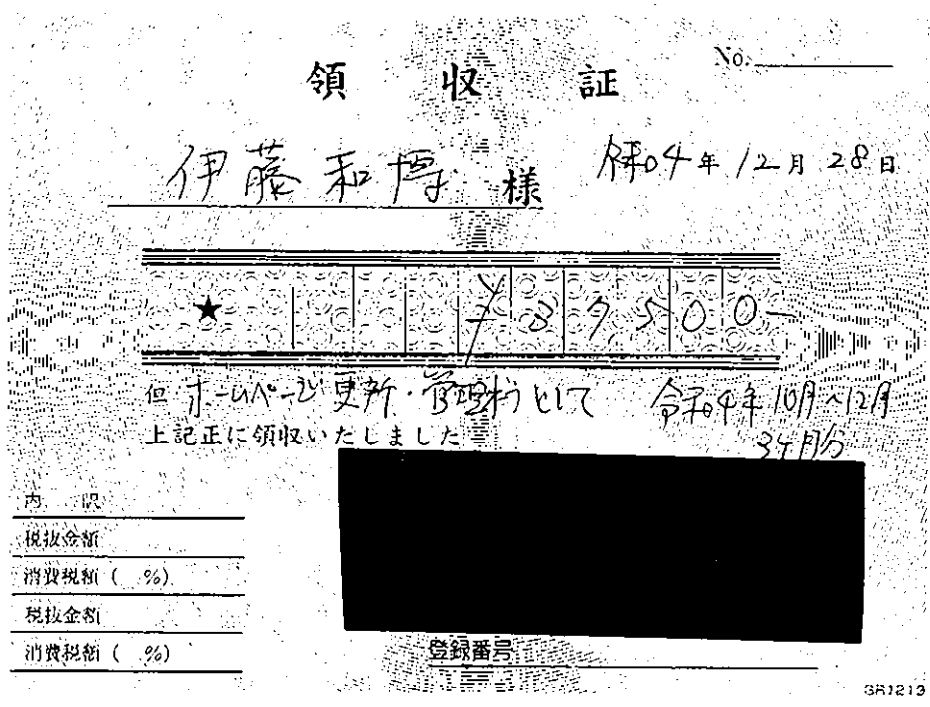 領収証
No.
伊藤和博 様
令和04年12月28日
★ ¥37500-
但 ホームページ更新・管理料として 令和4年10月~12月
上記正に領収いたしました 3ケ月分
内 訳
税抜金額
消費税額( %)
税抜金額
消費税額( %)
登録番号
GR1213